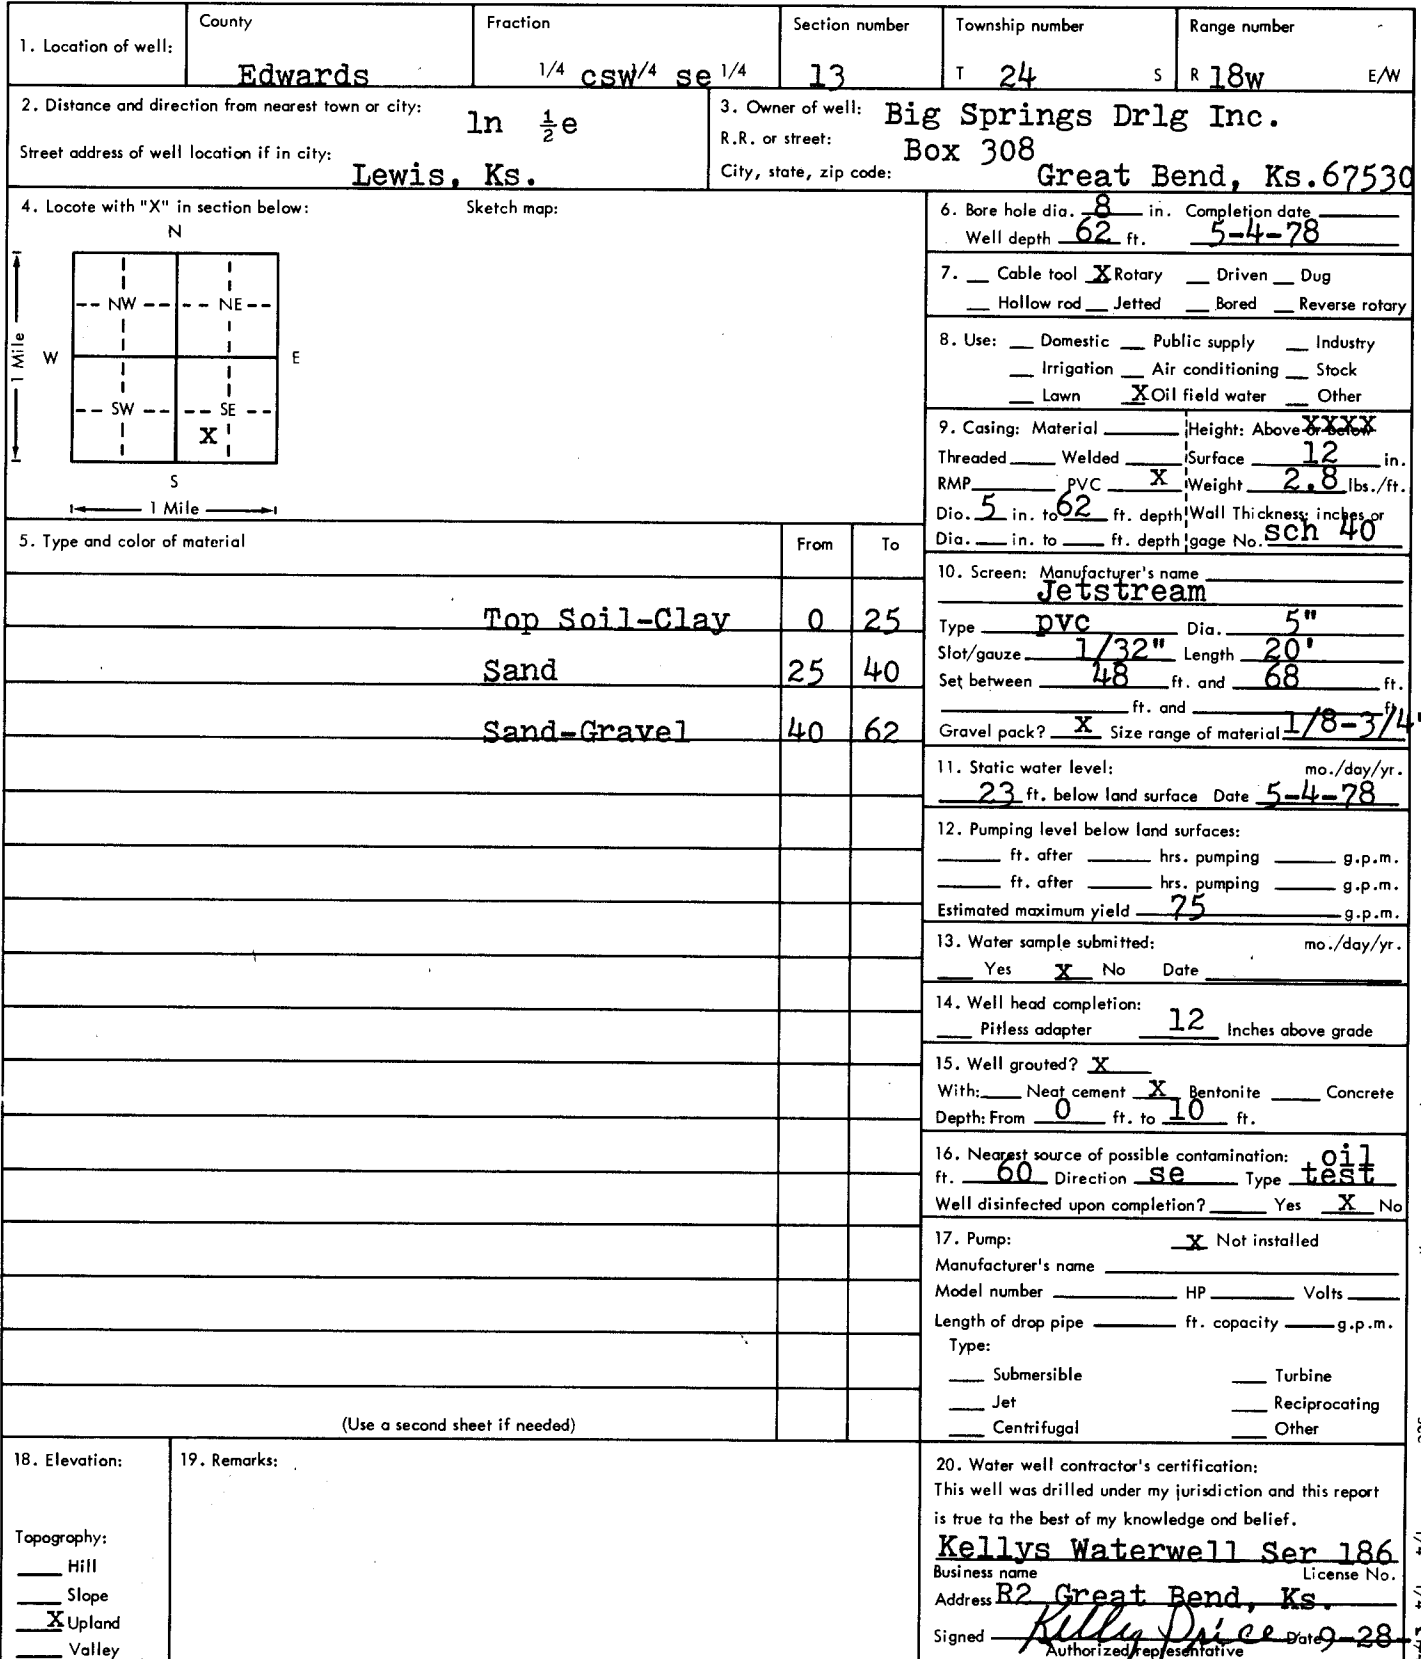 1. Location of well: County Edwards Fraction 1/4 csw 1/4 se 1/4 Section number 13 Township number T 24 S Range number R 18w E/W
2. Distance and direction from nearest town or city: 1n ½e
Street address of well location if in city: Lewis, Ks.
3. Owner of well: Big Springs Drlg Inc.
R.R. or street: Box 308
City, state, zip code: Great Bend, Ks.67530
4. Locote with "X" in section below: Sketch map:
N
NW NE
W E
1 Mile
SW SE
X
S
1 Mile
5. Type and color of material From To
Top Soil-Clay 0 25
Sand 25 40
Sand-Gravel 40 62
(Use a second sheet if needed)
6. Bore hole dia. 8 in. Completion date
Well depth 62 ft. 5-4-78
7. Cable tool X Rotary Driven Dug
Hollow rod Jetted Bored Reverse rotary
8. Use: Domestic Public supply Industry
Irrigation Air conditioning Stock
Lawn X Oil field water Other
9. Casing: Material Height: Above or below XXXX
Threaded Welded Surface 12 in.
RMP PVC X Weight 2.8 lbs./ft.
Dio. 5 in. to 62 ft. depth Wall Thickness: inches or
Dia. in. to ft. depth gage No. sch 40
10. Screen: Manufacturer's name
Jetstream
Type pvc Dia. 5"
Slot/gauze 1/32" Length 20'
Set between 48 ft. and 68 ft.
ft. and ft.
Gravel pack? X Size range of material 1/8-3/4"
11. Static water level: mo./day/yr.
23 ft. below land surface Date 5-4-78
12. Pumping level below land surfaces:
ft. after hrs. pumping g.p.m.
ft. after hrs. pumping g.p.m.
Estimated maximum yield 75 g.p.m.
13. Water sample submitted: mo./day/yr.
Yes X No Date
14. Well head completion:
Pitless adapter 12 Inches above grade
15. Well grouted? X
With: Neat cement X Bentonite Concrete
Depth: From 0 ft. to 10 ft.
16. Nearest source of possible contamination: oil
ft. 60 Direction se Type test
Well disinfected upon completion? Yes X No
17. Pump: X Not installed
Manufacturer's name
Model number HP Volts
Length of drop pipe ft. capacity g.p.m.
Type:
Submersible Turbine
Jet Reciprocating
Centrifugal Other
18. Elevation:
Topography:
Hill
Slope
X Upland
Valley
19. Remarks:
20. Water well contractor's certification:
This well was drilled under my jurisdiction and this report
is true ta the best of my knowledge ond belief.
Kellys Waterwell Ser 186
Business name License No.
Address R2 Great Bend, Ks.
Signed Kelly Price Date 9-28-
Authorized representative